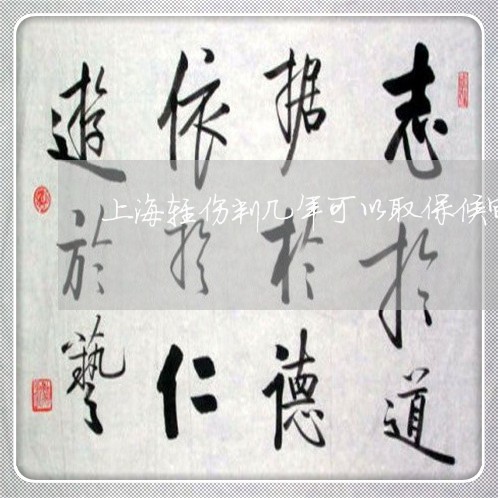 志於道
据於德
依於仁
遊於藝
上海轻伤判几年可以取保候